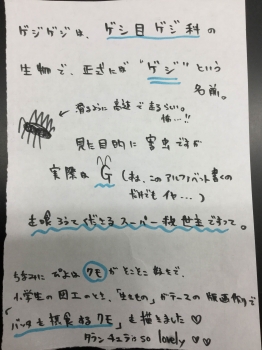 ゲジゲジは、ゲジ目ゲジ科の
生物で、正式には"ゲジ"という
名前。
滑るように高速で走るらしい。
怖…!!
見た目的に害虫ですが
実際はG(ね、このアルファベット書くの
だけでもイヤ…)
を喰らって下さるスーパー救世主ですって。
ちなみに ぴよは クモ がとことん好きで、
小学生の図工のとき、"生きもの"がテーマの版画作りで
「バッタを捕食するクモ」を描きました♡♡
タランチュラ so lovely ♡